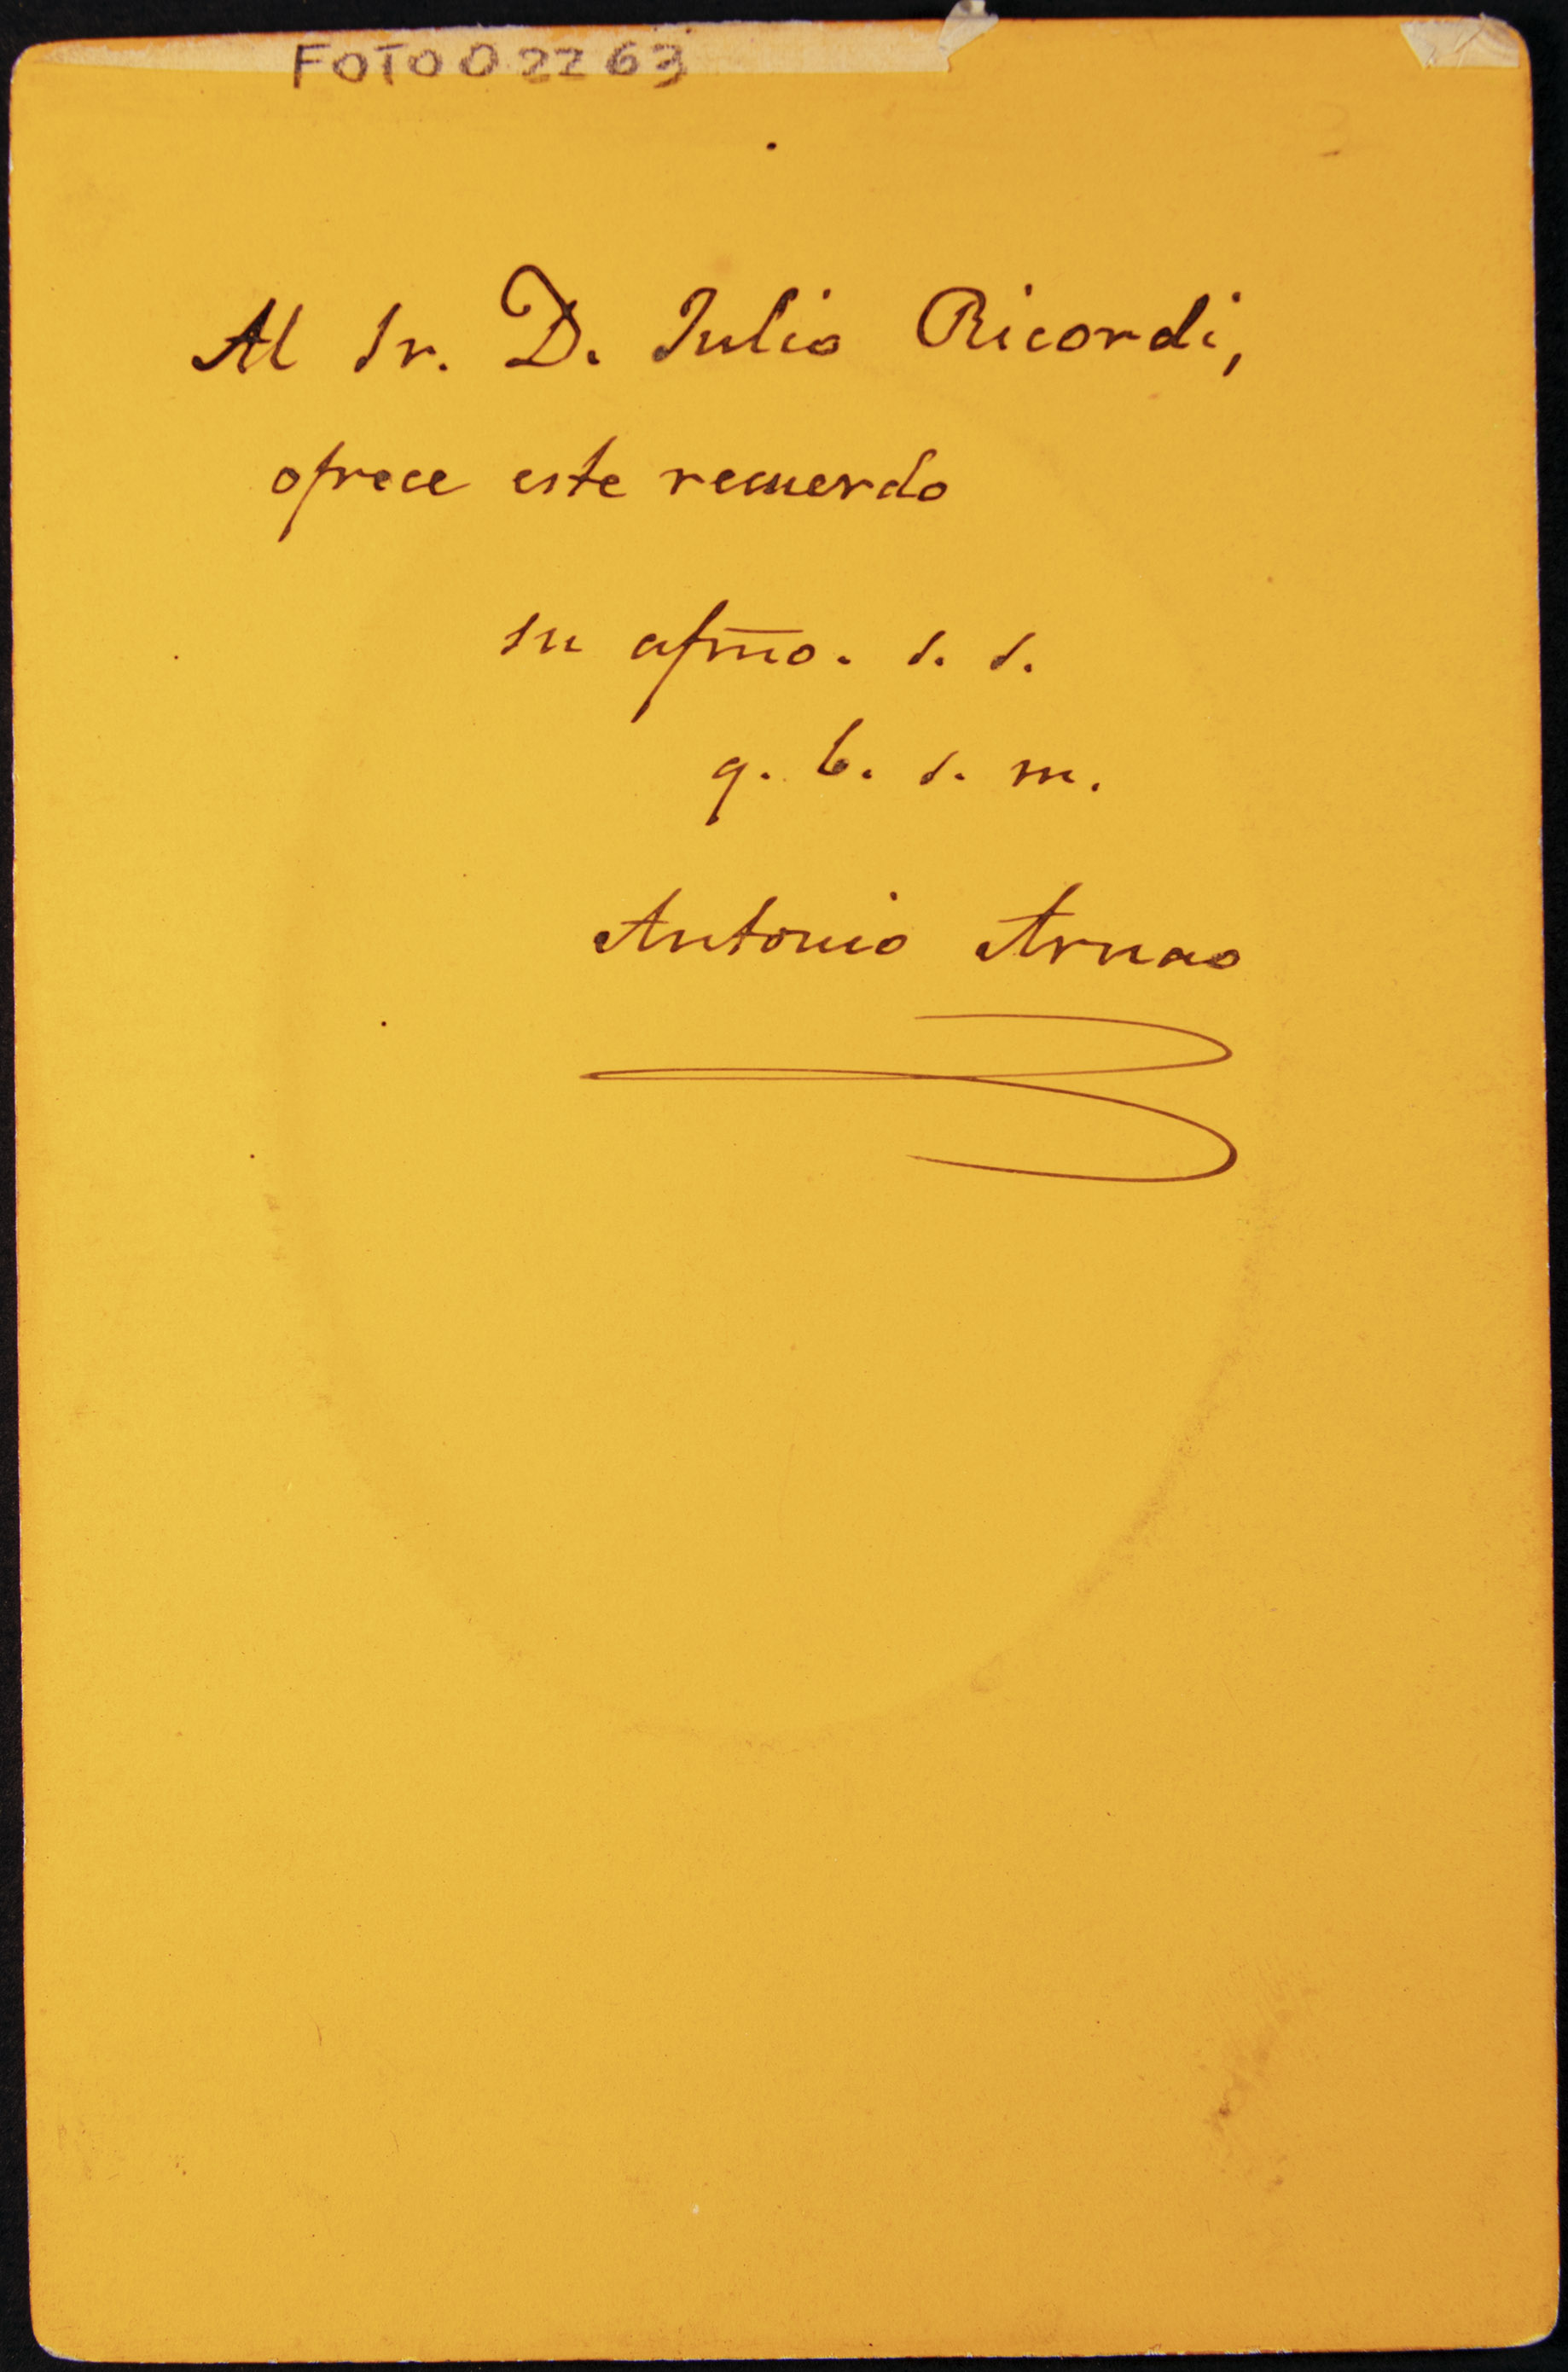 FOTO002263
Al Sr. D. Julio Ricordi,
ofrece este recuerdo
su afm̅o. s. s.
q. b. s. m.
Antonio Arnao